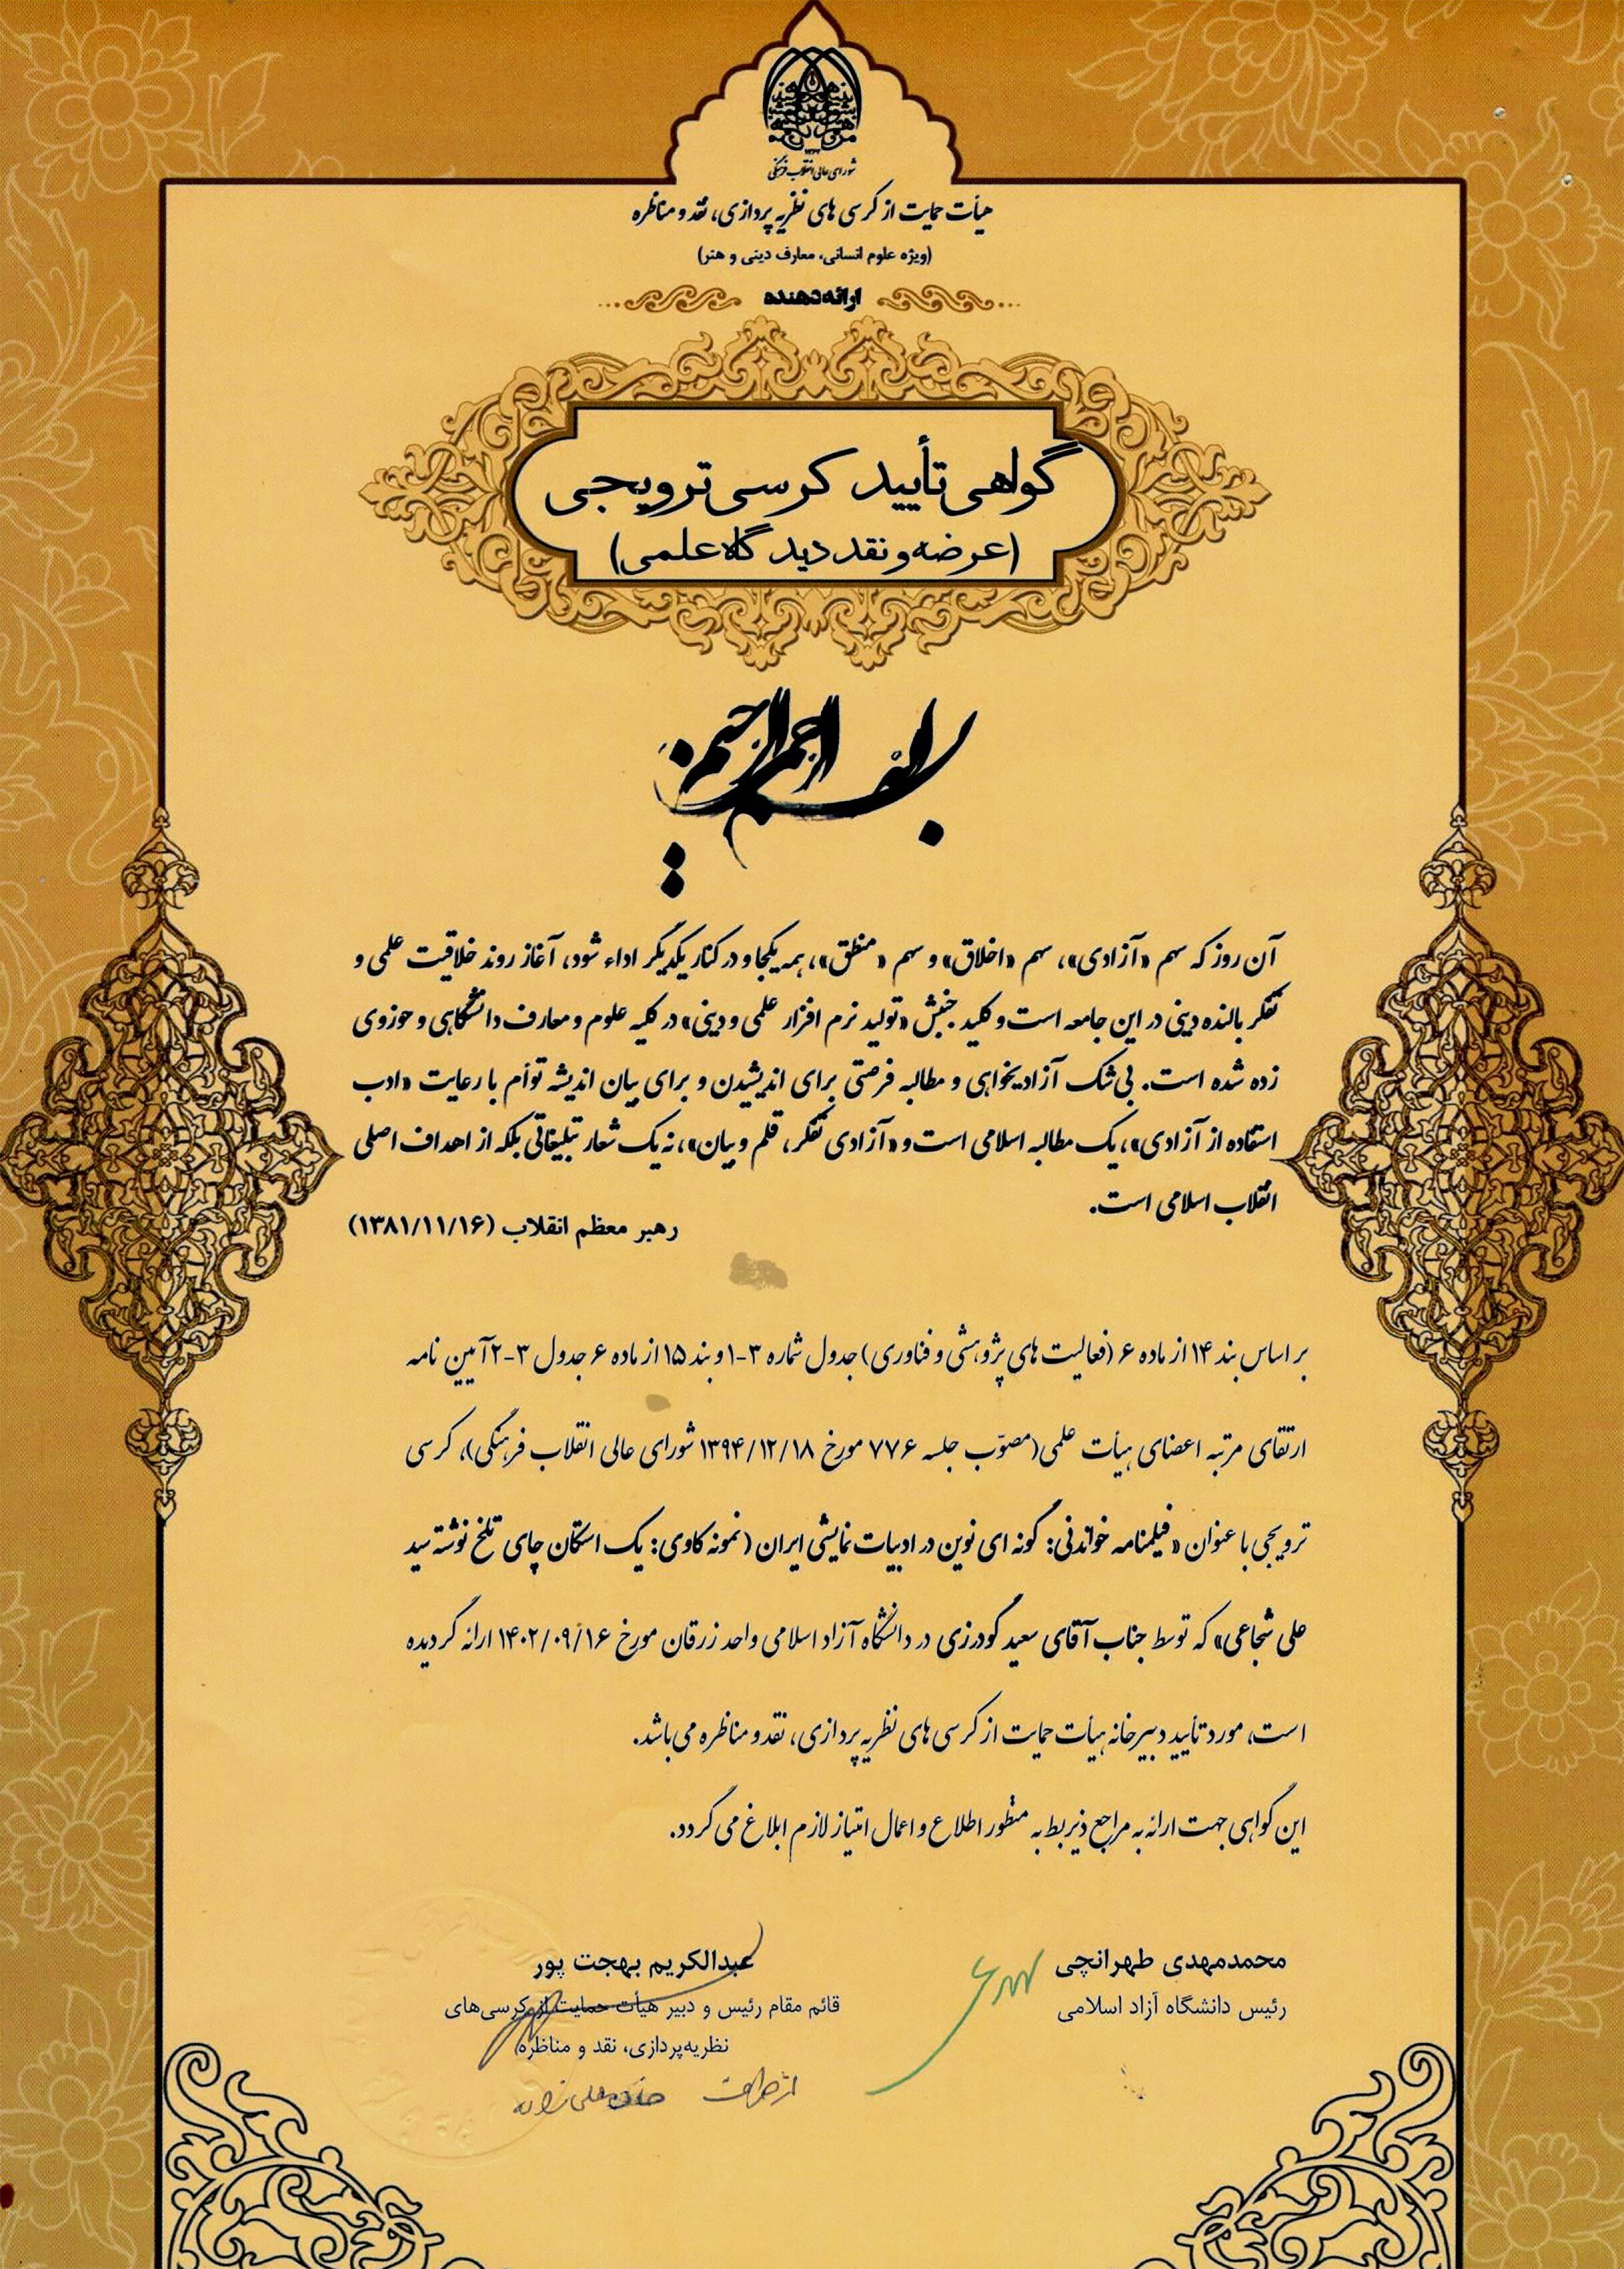 شورای عالی انقلاب فرهنگی
هیأت حمایت از کرسی های نظریه پردازی، نقد و مناظره
(ویژه علوم انسانی، معارف دینی و هنر)
ارائه‌دهنده
گواهی تأیید کرسی ترویجی
(عرضه و نقد دیدگاه علمی)
بسم الله الرحمن الرحیم
آن روز که سهم «آزادی»، سهم «اخلاق» و سهم «منطق»، همه یکجا و در کنار یکدیگر اداء شود، آغاز روند خلاقیت علمی و
تفکر بالنده دینی در این جامعه است و کلید جنبش «تولید نرم افزار علمی و دینی» در کلیه علوم و معارف دانشگاهی و حوزوی
زده شده است. بی شک آزادیخواهی و مطالبه فرصتی برای اندیشیدن و برای بیان اندیشه توأم با رعایت «ادب
استفاده از آزادی»، یک مطالبه اسلامی است و «آزادی تفکر، قلم و بیان»، نه یک شعار تبلیغاتی بلکه از اهداف اصلی
انقلاب اسلامی است.
رهبر معظم انقلاب (۱۳۸۱/۱۱/۱۶)
بر اساس بند ۱۴ از ماده ۶ (فعالیت های پژوهشی و فناوری) جدول شماره ۳-۱ و بند ۱۵ از ماده ۶ جدول ۳-۲ آیین نامه
ارتقای مرتبه اعضای هیأت علمی (مصوّب جلسه ۷۷۶ مورخ ۱۳۹۴/۱۲/۱۸ شورای عالی انقلاب فرهنگی)، کرسی
ترویجی با عنوان «فیلمنامه خواندنی: گونه ای نوین در ادبیات نمایشی ایران (نمونه کاوی: یک استکان چای تلخ نوشته سید
علی شجاعی» که توسط جناب آقای سعید گودرزی در دانشگاه آزاد اسلامی واحد زرقان مورخ ۱۴۰۲/۰۹/۱۶ ارائه گردیده
است، مورد تأیید دبیرخانه هیأت حمایت از کرسی های نظریه پردازی، نقد و مناظره می باشد.
این گواهی جهت ارائه به مراجع ذیربط به منظور اطلاع و اعمال امتیاز لازم ابلاغ می گردد.
محمدمهدی طهرانچی
رئیس دانشگاه آزاد اسلامی
عبدالکریم بهجت پور
قائم مقام رئیس و دبیر هیأت حمایت از کرسی‌های
نظریه‌پردازی، نقد و مناظره
از طرف